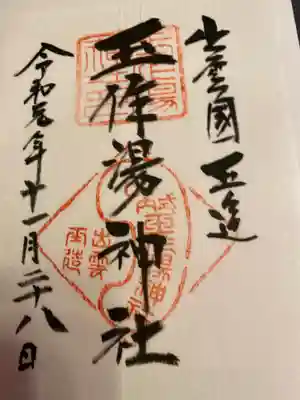 出雲國 玉造
玉作湯神社
令和元年十一月二十八日
出雲
玉造